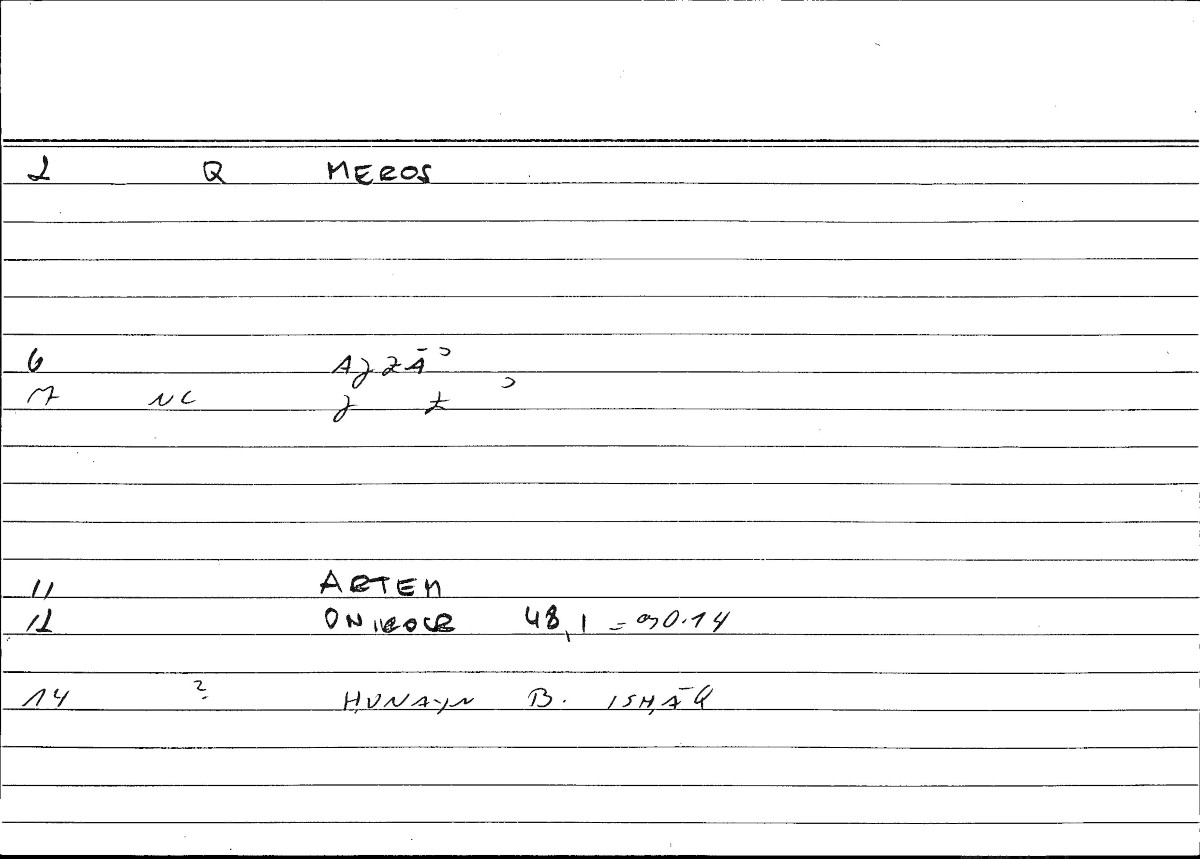 2 Q MEROS
6 AJZĀʾ
7 NC J Z ʾ
11 ARTEM
12 ONIROCR 48,1 = 90.14
14 ? ḤUNAYN B. ISḤĀQ